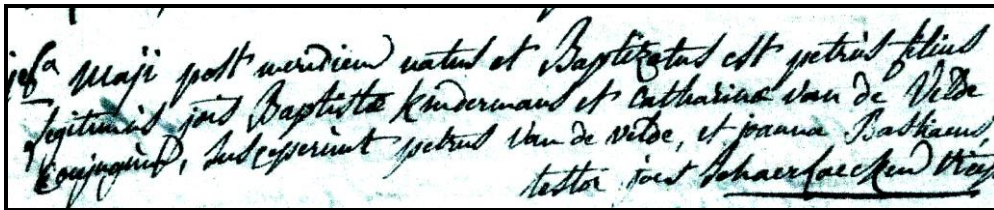 Maji post meridiem natus et Baptizatus est petrus filius
legitimus jois Baptistæ Kindermans et Catharinæ van de Velde
Conjugum, susceperunt petrus van de velde, et joanna Bastiaens,
testor joes